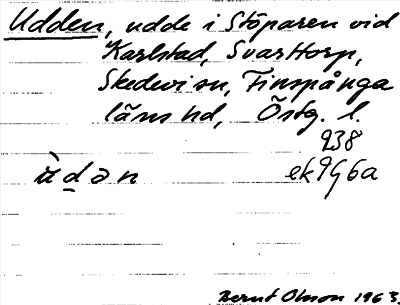 Udden, udde i Stöparen vid
Karlstad, Svarttorp,
Skedevi sn, Finspånga
läns hd, Östg. l.
238
ùdən ek 9G6a
Bernt Olsson 1963.